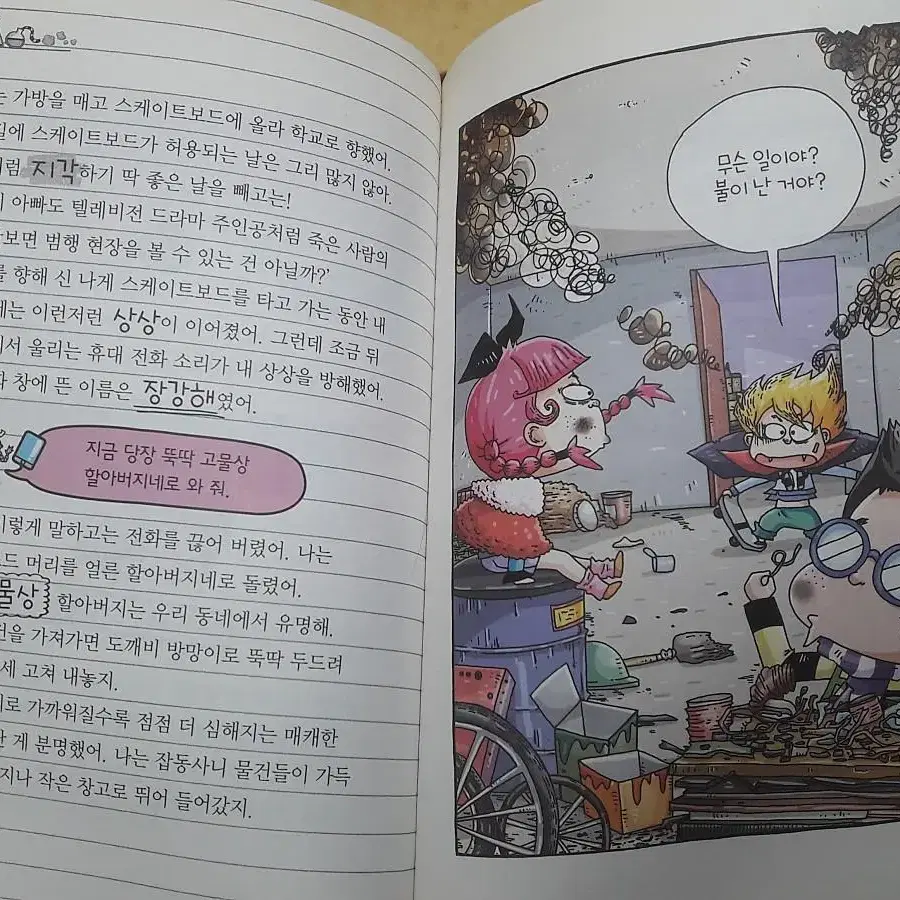 가방을 매고 스케이트보드에 올라 학교로 향했어.
스케이트보드가 허용되는 날은 그리 많지 않아.
지각하기 딱 좋은 날을 빼고는!
아빠도 텔레비전 드라마 주인공처럼 죽은 사람의
범행 현장을 볼 수 있는 건 아닐까?
향해 신 나게 스케이트보드를 타고 가는 동안 내
이런저런 상상이 이어졌어. 그런데 조금 뒤
울리는 휴대 전화 소리가 내 상상을 방해했어.
창에 뜬 이름은 장강해였어.
지금 당장 뚝딱 고물상
할아버지네로 와 줘.
이렇게 말하고는 전화를 끊어 버렸어. 나는
머리를 얼른 할아버지네로 돌렸어.
할아버지는 우리 동네에서 유명해.
가져가면 도깨비 방망이로 뚝딱 두드려
고쳐 내놓지.
가까워질수록 점점 더 심해지는 매캐한
게 분명했어. 나는 잡동사니 물건들이 가득
작은 창고로 뛰어 들어갔지.
무슨 일이야?
불이 난 거야?